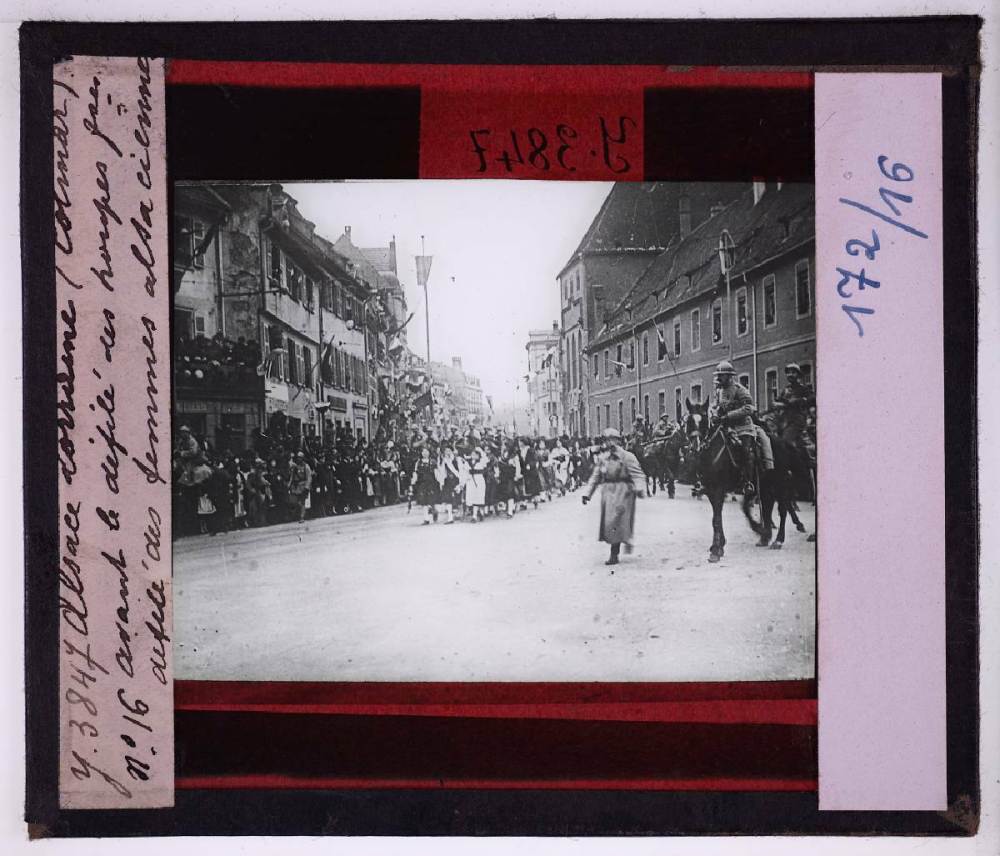 Y. 3847 Alsace lorraine (Colmar).
N° 16 avant le défilé des troupes fses
défilé des femmes alsacienne
Y. 3847
172/16